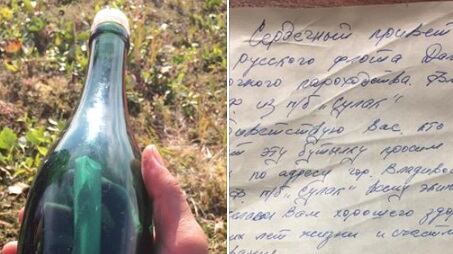 Сердечный привет
русского флота Дал
очного пароходства.
р из п/б „Сулак“
иветствую Вас, кто
т эту бутылку просим
по адресу гор. Владивос
п/б „Сулак“ всему экип
Вам хорошего здор
их лет жизни и счастл